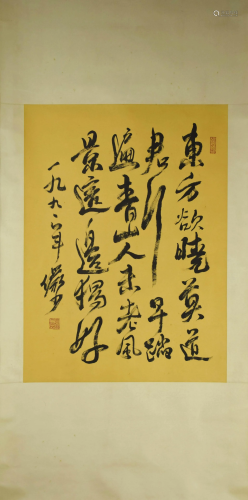 東方欲曉莫道
君行早踏
遍青山人未老风
景這邊獨好
一九九年